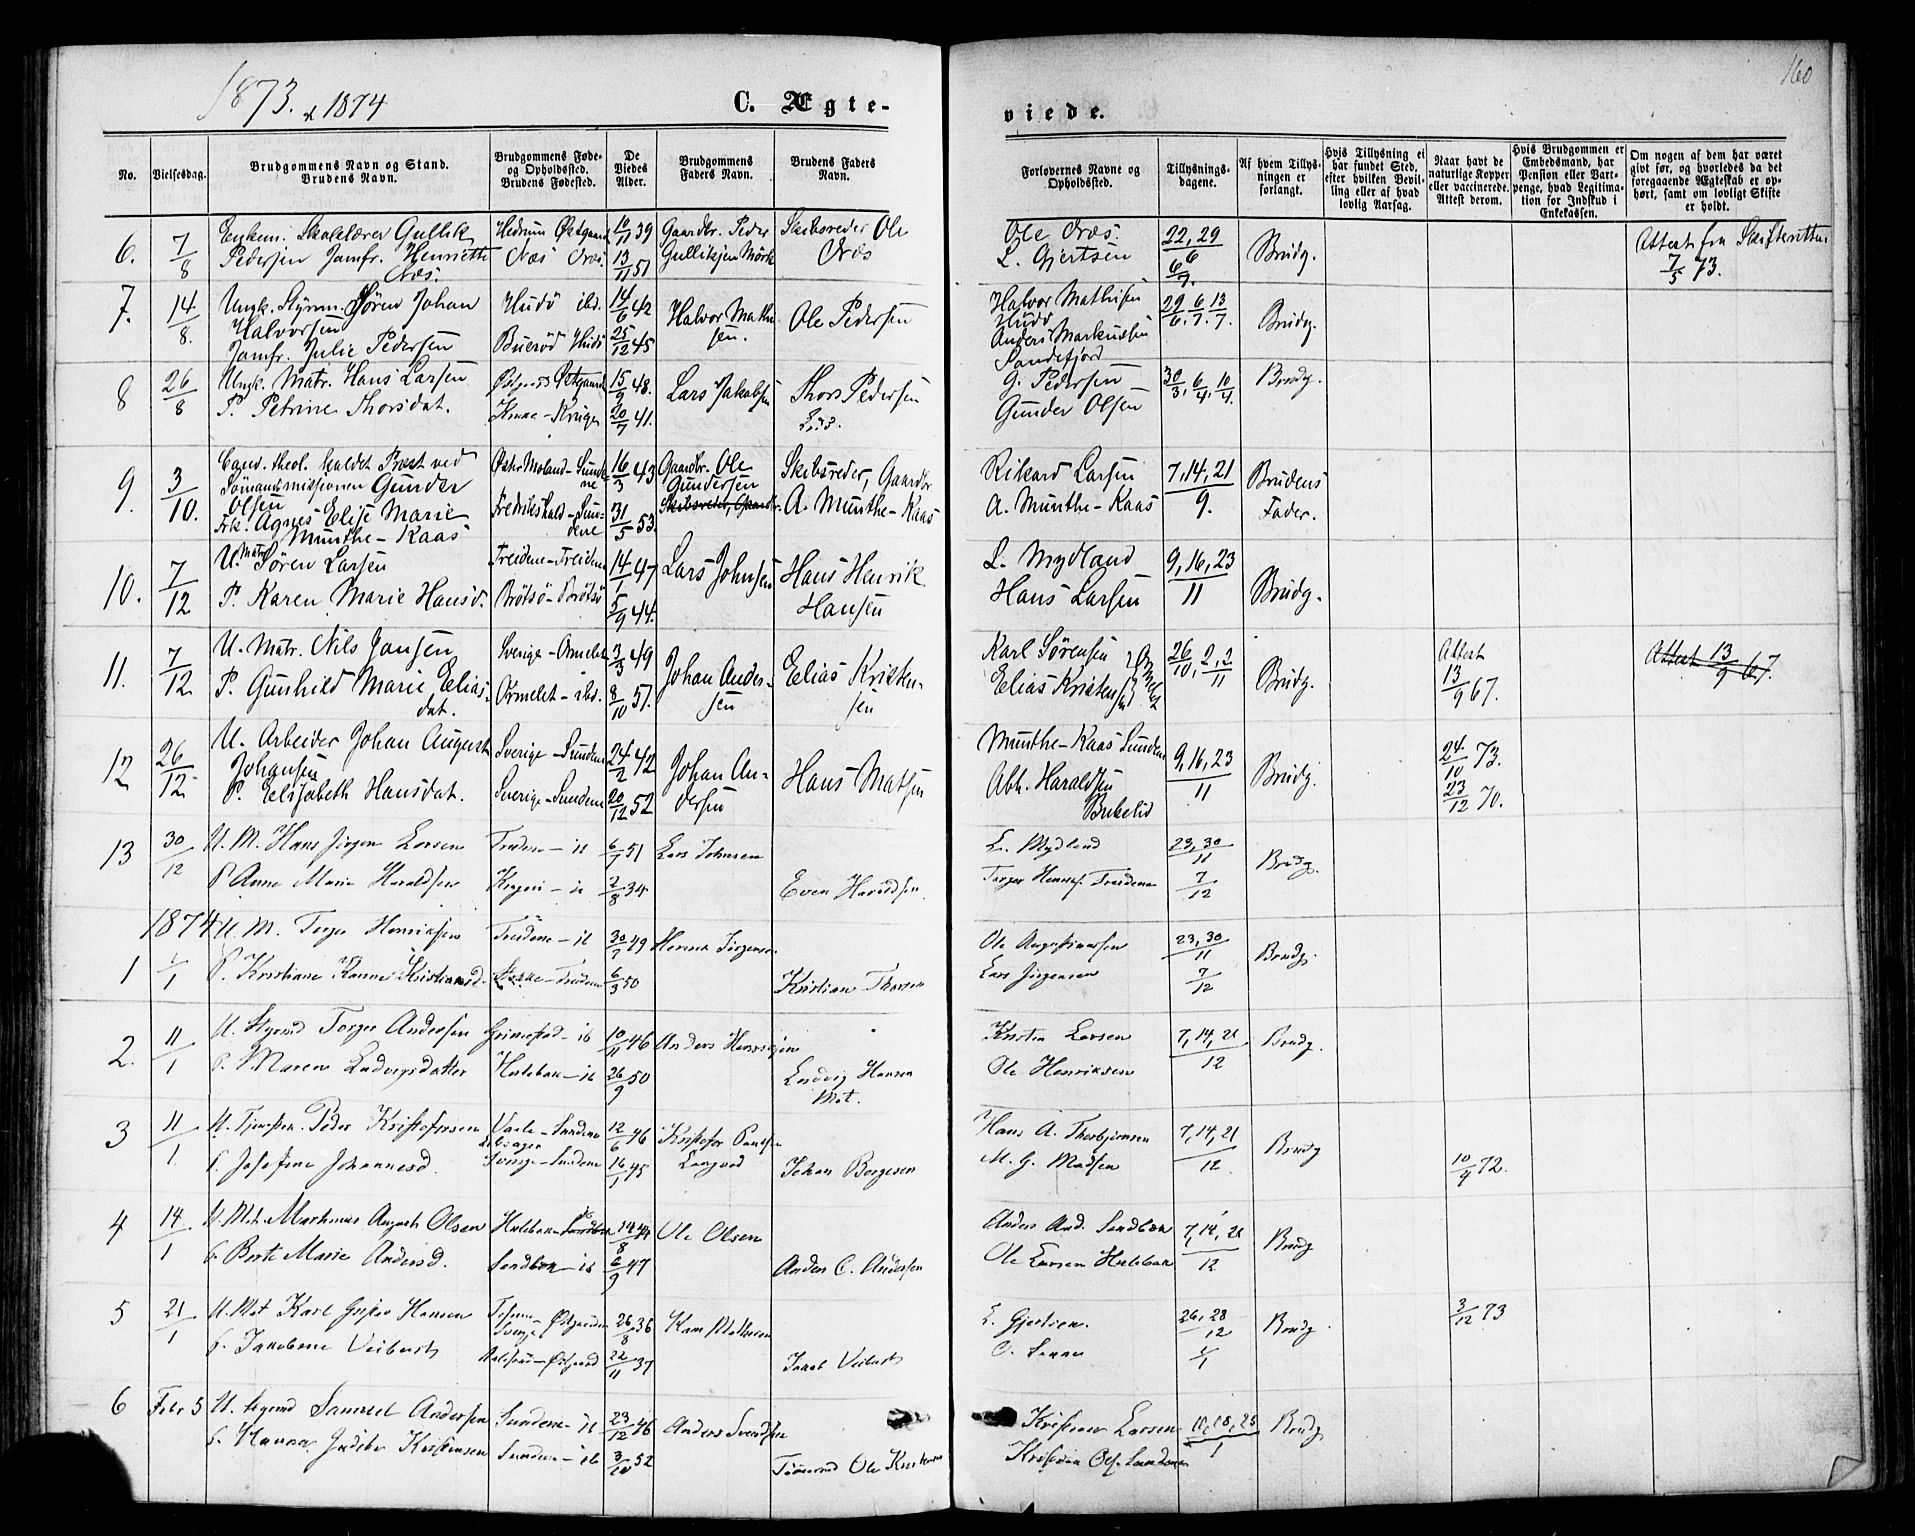 1873. & 1874
C. Ægte-
viede.
160
No.
Vielsesdag.
Brudgommens Navn og Stand.
Brudens Navn.
Brudgommens Føde-
og Opholdssted.
Brudens Fødested.
De
Viedes
Alder.
Brudgommens
Faders Navn.
Brudens Faders
Navn.
Forlovernes Navne og
Opholdssted.
Tillysnings-
dagene.
Af hvem Tillys-
ningen er
forlangt.
Hvis Tillysning ei
har fundet Sted,
efter hvilken Bevil-
ling eller af hvad
lovlig Aarsag.
Naar havt de
naturlige Kopper
eller vaccinerede.
Attest derom.
Hvis Brudgommen er
Embedsmand, har
Pension eller Vart-
penge, hvad Legitima-
tion for Indskud i
Enkekassen.
Om nogen af dem har været
givt før, og hvorledes da det
foregaaende Ægteskab er op-
hørt, samt om lovligt Skifte
er holdt.
6. 7/8
Enkem. Skolelærer Gullik
Pedersen Jomfr. Henriette
Næs.
Hedrum Østgaard
Næs Næs.
39
13/11 51
Gaardbr. Peder
Gulliksen Mørk
Skibsreder Ole
Næs
Ole Næs.
L. Gjertsen
22, 29
6
6/7.
Brudg.
Attest fra Skifteretten
7/5 73.
7. 14/8.
Ungk. Styrm. Søren Johan
Halvorsen
Jomfr. Julie Pedersen
Hudø ibd.
Buerød Hudø
14/6 42
25/12 45
Halvor Mathi
sen.
Ole Pedersen
Halvor Mathisen
Hudø
Anders Markussen
Sandefjord
29/6, 6/7, 13/7.
Brudg.
8 26/8
Ungk. Matr. Hans Larsen
P. Petrine Thorsdat.
15/9 48.
20/7 41.
Lars Jakobsen
Thors Pedersen
G. Pedersen
Gunder Olsen
30/3, 6/4, 10/4.
Brudg.
9. 3/10.
Cand. theol. kaldet Præst ved
Sømandsmissionen Gunder
Olsen
Frk. Agnes Elise Marie
Munthe-Kaas
Østr Moland-Sunde
ne
Fredrikshald-Sun-
dene
16/3 43
31/5 53.
Gaardbr. Ole
Gundersen
Skibsreder, Gaardbr.
Skibsreder, Gaardbr.
A. Munthe-Kaas
Rikard Larsen
A. Munthe-Kaas
7, 14, 21
9.
Brudens
Fader.
10. 7/12
U. Matr. Søren Larsen
P. Karen Marie Hansd.
Treidene-Treidene
Brøtsø-Brøtsø
14/1 47
5/9 44.
Lars Johnsen
Hans Henrik
Hansen
L. Mydland
Hans Larsen
9, 16, 23
11
Brudg.
11. 7/12
U. Matr. Nils Jansen
P. Gunhild Marie Elias-
dat.
Sverige-Ormelet
Ormelet-ibd.
3/3 49
8/10 51.
Johan Ander-
sen
Elias Kristen-
sen
Karl Sørensen
Elias Kristensen
Ormelet
26/10, 2, 2/11
Brudg.
Attest
13/9 67.
Attest 13/9 67.
12 26/12
U. Arbeider Johan August
Johansen
P. Elisabeth Hansdat.
Sverige-Sundene
Sverige-Sundene
24/2 42
20/12 52
Johan An-
dersen
Hans Matsen
Munthe-Kaas Sundene
Abh. Haraldsen
9, 16, 23
11
Brudg.
24/10 73.
23/12 70.
13 30/12
U. M. Hans Jørgen Larsen
P Anne Marie Haraldsen
Treidene-ib
Kragerø-ib
6/7 51
2/8 34
Lars Johnsen
Even Haraldsen
L. Mydland
Torger Henriks. Treidene
23, 30
11
7/12
Brudg.
1874
1
U. M. Torger Henriksen
P. Kristiane Hanne Kristiansd.
Treidene-ib
Treidene
30/7 49
6/3 50
Henrik Jørgensen
Kristian Thorsen
Ole Augustinussen
Lars Jørgensen
23, 30
11
7/12
Brudg.
2. 11/1
U. Styrmd Torger Andersen
P. Maren Ludvigsdatter
Grimestad-ib
Holebak-ib
10/11 46
26/9 50
Anders Henriksen
Ludvig Hansen
Mat.
Kristen Larsen
Ole Henriksen
7, 14, 21
12
Brudg.
3 11/1
U. Tjenesten. Peder Kristofersen
P. Josefine Johannesd.
Vaale-Sundene
Sverige-Sundene
12/6 46
16/1 45
Kristofer Paulsen
Johan Børgesen
Hans A. Thorbjørnsen
M. G. Madsen
7, 14, 21
12
Brudg
10/9 72.
4 14/1
U. Mat. Martinus August Olsen
P. Berte Marie Andersd.
Holebak-
Sandbæk-ib
14/8 44
6/9 47
Ole Olsen
Anders C. Andersen
Anders And. Sandbæk
Ole Larsen Holebak
7, 14, 21
12
Brudg
5 21/1
U. Mat Karl Gustav Hansen
P. Jakobine Veibust
26/8 36
22/11 37
Jakob Veibust
L. Gjertsen.
26, 28
12
1/1
Brudg.
3/12 73
6 Febr 5
U. Styrmd Samuel Andersen
P. Hanna Kristensen
Sundene-ib
Sundene-ib
23/12 46
3/10 52
Anders Svendsen
Tømmermd Ole Kristensen
Kristian Larsen
11, 18, 25
1
Brudg